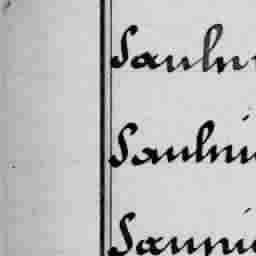 Sauln
Saulni
Sauni